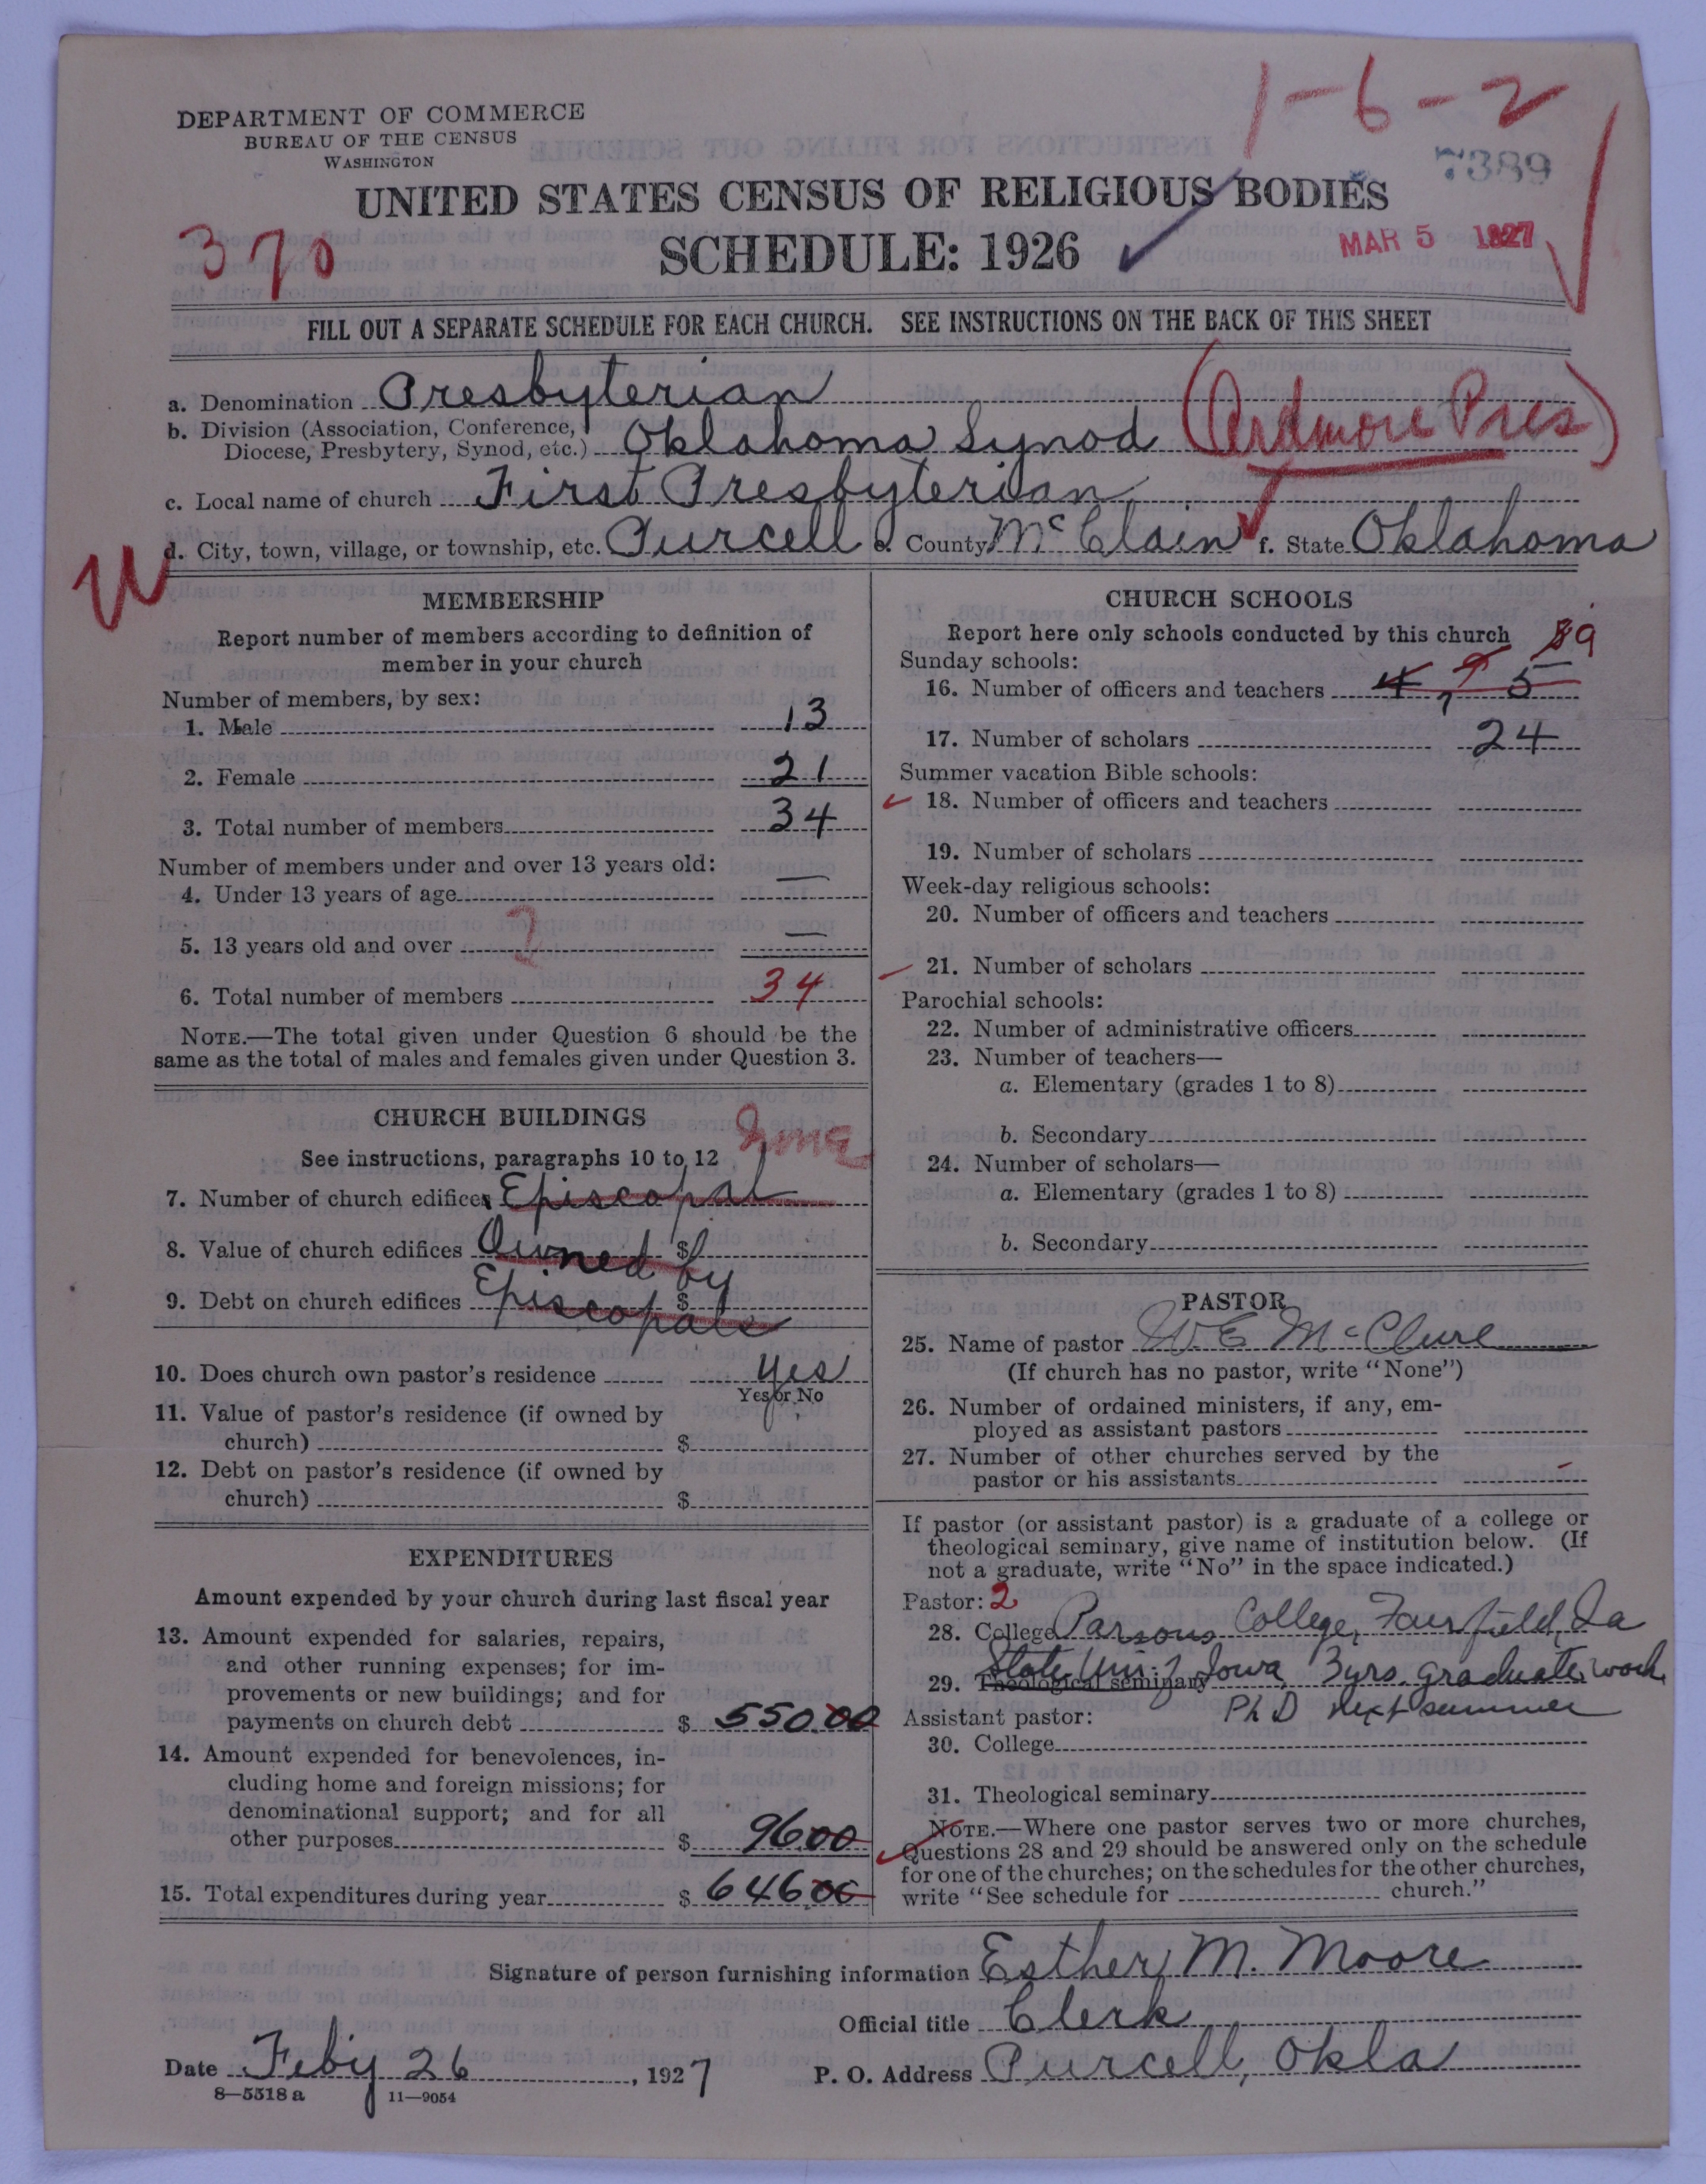 1-6-2
DEPARTMENT OF COMMERCE
BUREAU OF THE CENSUS
WASHINGTON
7389
UNITED STATES CENSUS OF RELIGIOUS BODIES
SCHEDULE: 1926
370
MAR 5 1927
FILL OUT A SEPARATE SCHEDULE FOR EACH CHURCH. SEE INSTRUCTIONS ON THE BACK OF THIS SHEET
a. Denomination Presbyterian
b. Division (Association, Conference, Diocese, Presbytery, Synod, etc.) Oklahoma Synod (Ardmore Pres)
c. Local name of church First Presbyterian
d. City, town, village, or township, etc. Purcell e. County McClain f. State Oklahoma
MEMBERSHIP
Report number of members according to definition of
member in your church
Number of members, by sex:
1. Male 13
2. Female 21
3. Total number of members 34
Number of members under and over 13 years old:
4. Under 13 years of age —
5. 13 years old and over —
6. Total number of members 34
NOTE.—The total given under Question 6 should be the
same as the total of males and females given under Question 3.
CHURCH BUILDINGS
See instructions, paragraphs 10 to 12
7. Number of church edifices Episcopal
8. Value of church edifices Owned by $
9. Debt on church edifices Episcopals $
10. Does church own pastor's residence yes
Yes or No
11. Value of pastor's residence (if owned by
church) $
12. Debt on pastor's residence (if owned by
church) $
EXPENDITURES
Amount expended by your church during last fiscal year
13. Amount expended for salaries, repairs,
and other running expenses; for im-
provements or new buildings; and for
payments on church debt $ 550.00
14. Amount expended for benevolences, in-
cluding home and foreign missions; for
denominational support; and for all
other purposes $ 96.00
15. Total expenditures during year $ 646.00
CHURCH SCHOOLS
Report here only schools conducted by this church
Sunday schools:
16. Number of officers and teachers 4 5
17. Number of scholars 24
Summer vacation Bible schools:
18. Number of officers and teachers
19. Number of scholars
Week-day religious schools:
20. Number of officers and teachers
21. Number of scholars
Parochial schools:
22. Number of administrative officers
23. Number of teachers—
a. Elementary (grades 1 to 8)
b. Secondary
24. Number of scholars—
a. Elementary (grades 1 to 8)
b. Secondary
PASTOR
25. Name of pastor W. E. McClure
(If church has no pastor, write "None")
26. Number of ordained ministers, if any, em-
ployed as assistant pastors
27. Number of other churches served by the
pastor or his assistants
If pastor (or assistant pastor) is a graduate of a college or
theological seminary, give name of institution below. (If
not a graduate, write "No" in the space indicated.)
Pastor: 2
28. College Parsons College, Fairfield, Ia
29. Theological seminary State Uni. of Iowa 3 yrs. graduate work
PhD next summer
Assistant pastor:
30. College
31. Theological seminary
NOTE.—Where one pastor serves two or more churches,
Questions 28 and 29 should be answered only on the schedule
for one of the churches; on the schedules for the other churches,
write "See schedule for church."
Signature of person furnishing information Esther M. Moore
Official title Clerk
Date Feby 26, 1927 P. O. Address Purcell, Okla
8—5518 a 11—9054